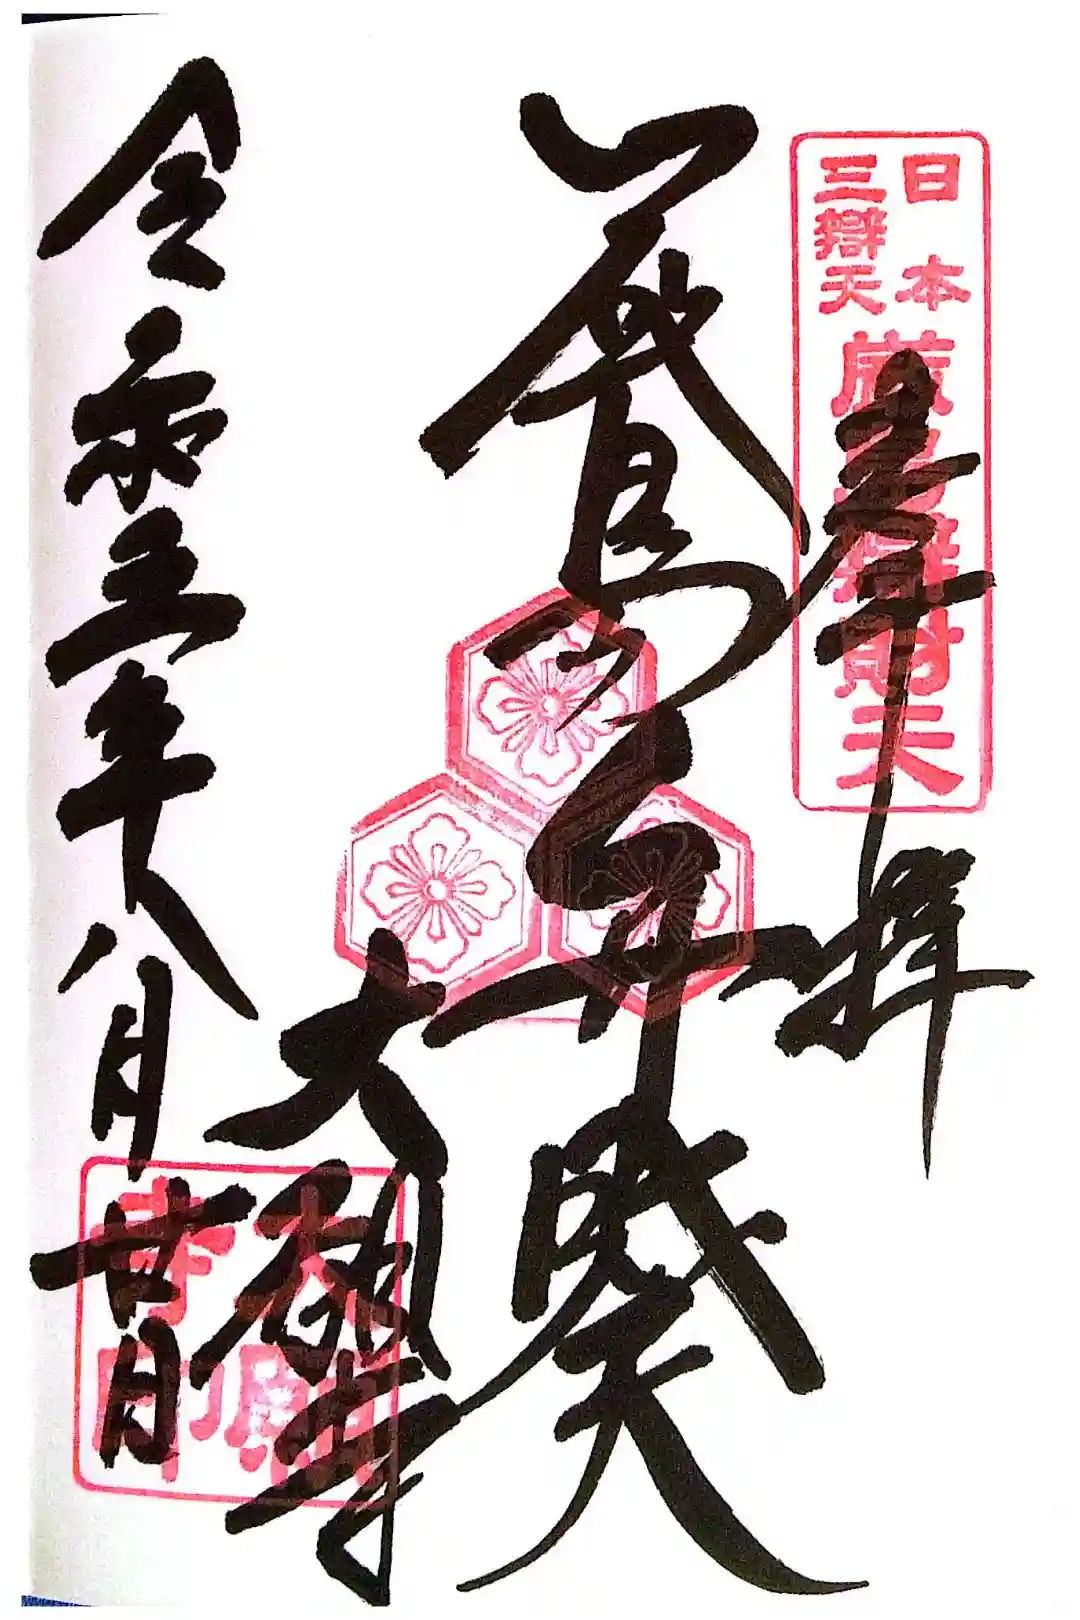 日本
三辯天
厳島辯財天
奉拝
厳島弁財天
大願寺
令和五年八月廿日
大願
寺印